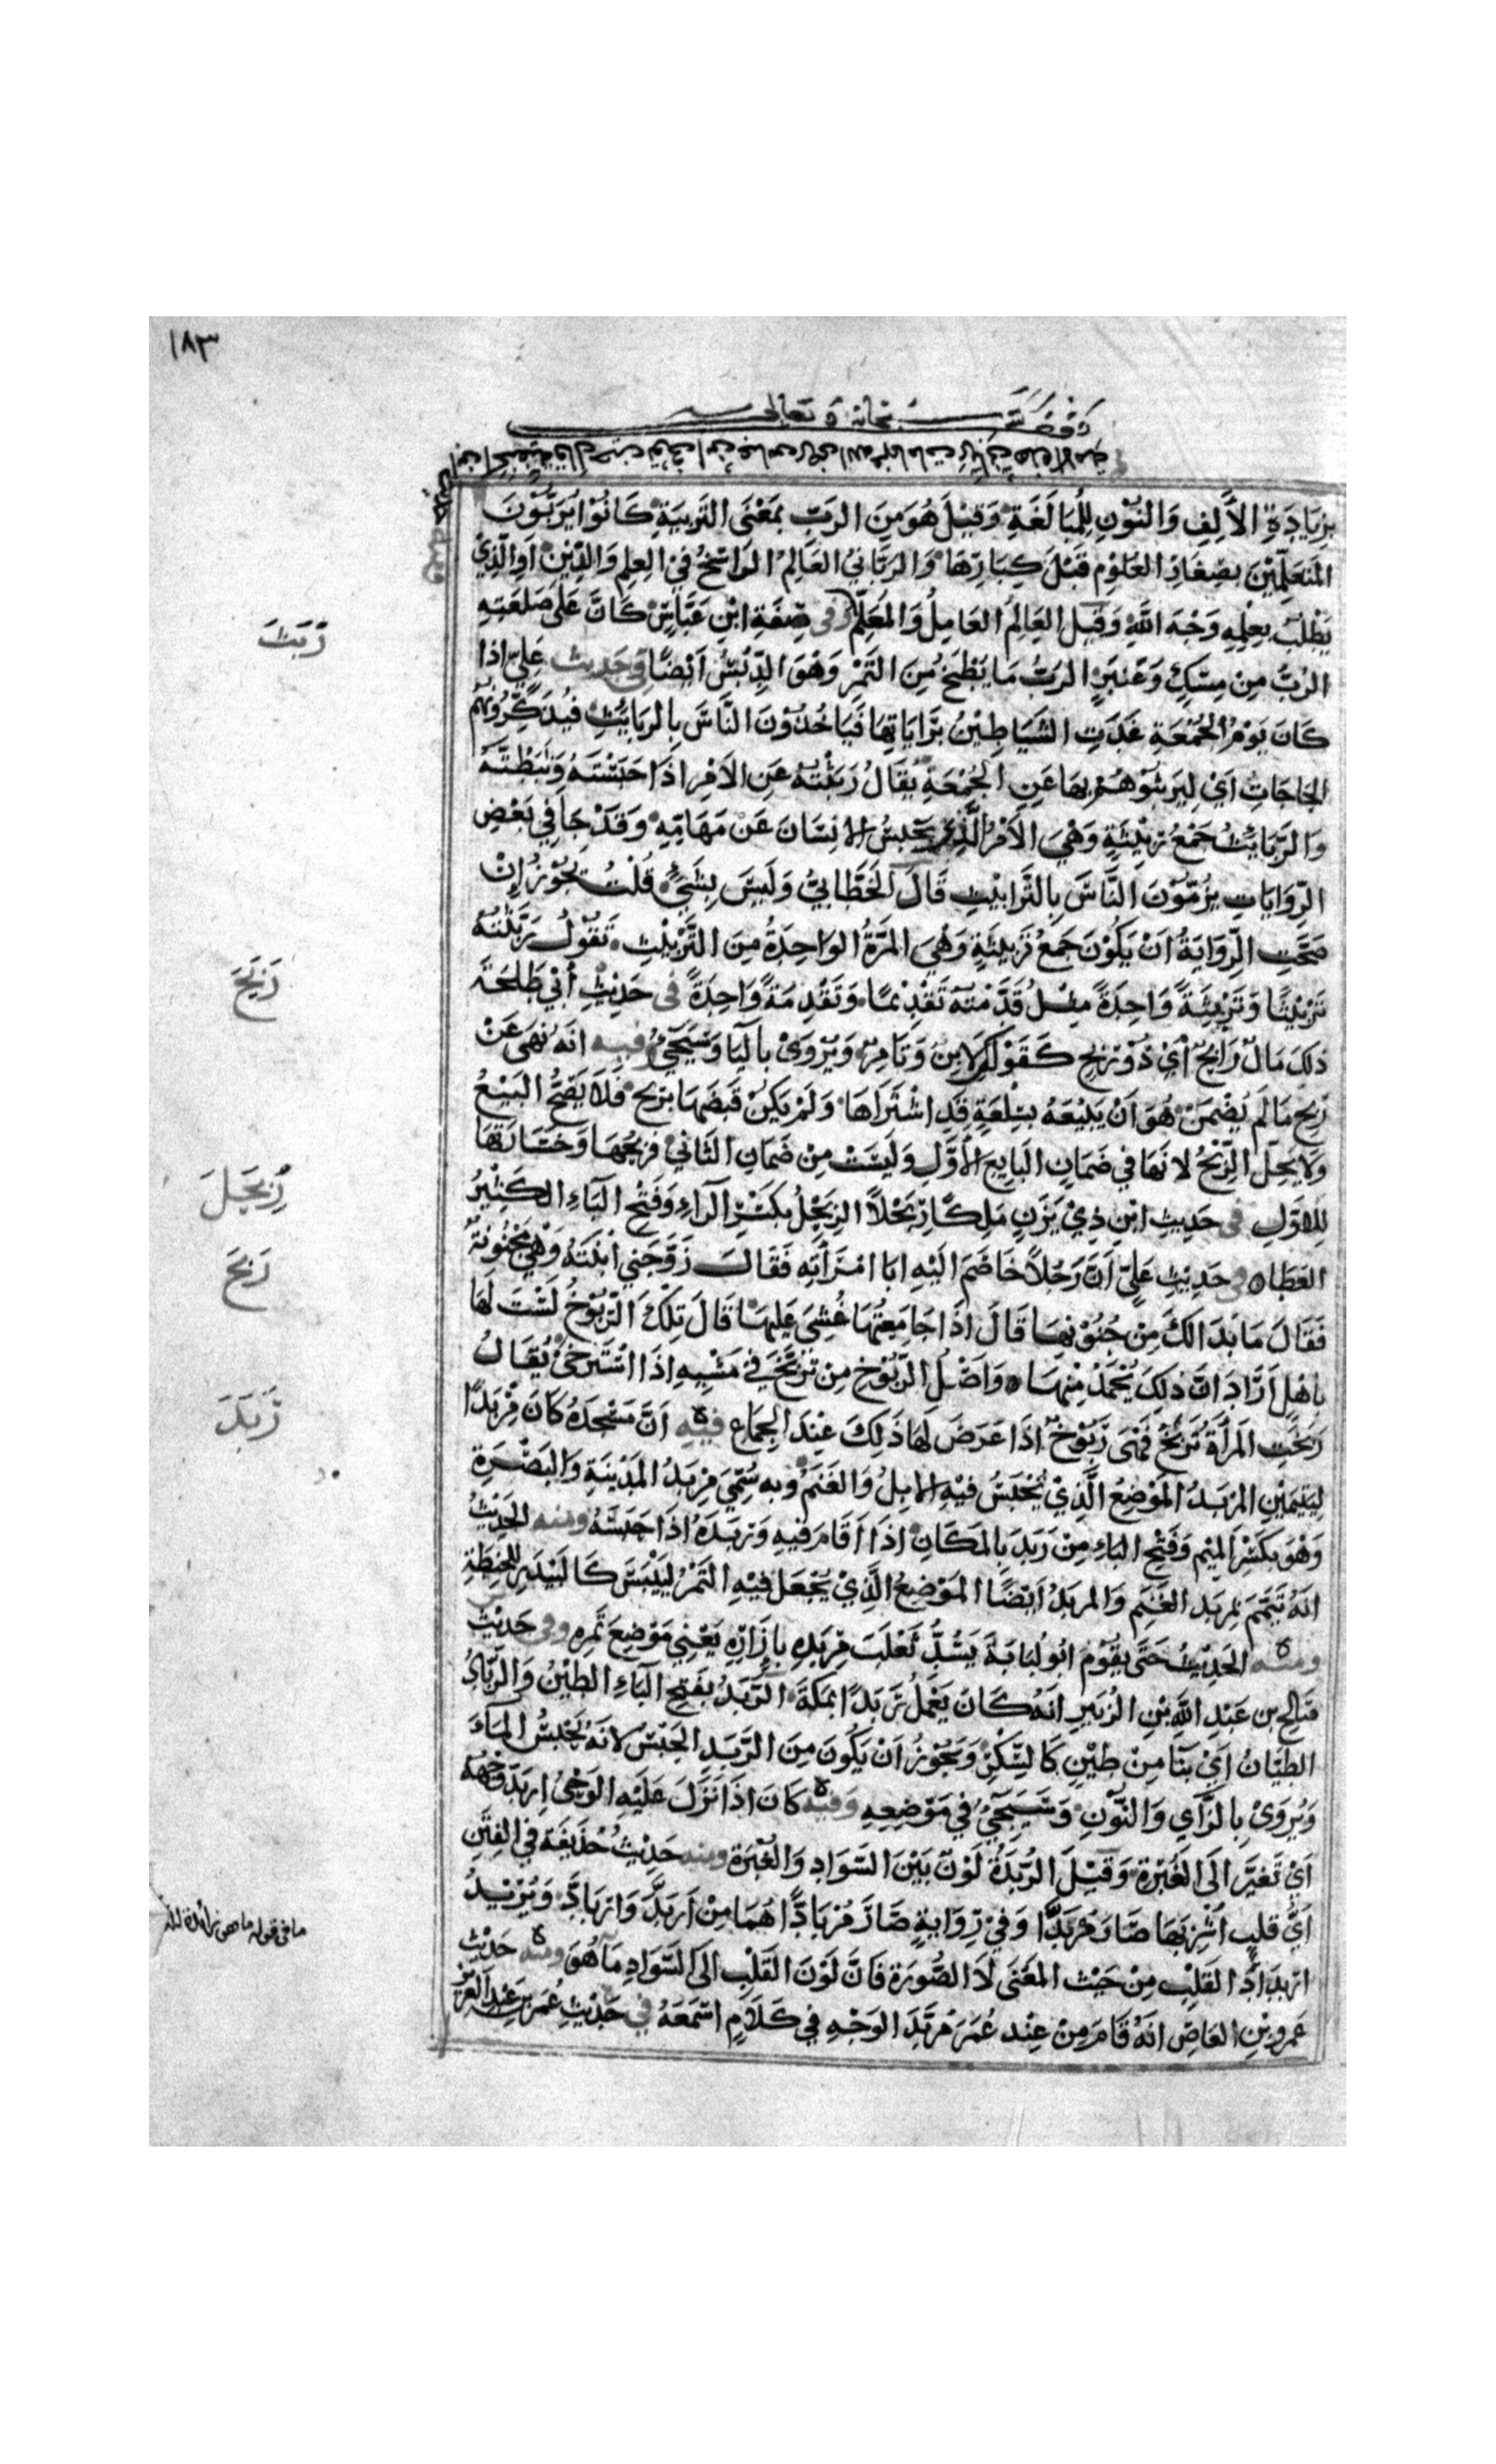 ١٨٣
وقف لله سبحانه و تعالى
بِزِيَادَةِ الأَلِفِ وَالنُّوْنِ لِلْمُبَالَغَةِ وَقِيْلَ هُوَ مِنَ الرَبِّ بِمَعْنَى التَرْبِيَةِ كَانُوْا يُرَبُّوْنَ
المُتَعَلِّمِيْنَ بِصِغَارِ العُلُوْمِ قَبْلَ كِبَارِهَا وَالرَبَّانِيُّ العَالِمُ الرَاسِخُ فِيْ العِلِمِ وَالدِّيْنِ أَوِ الَّذِيْ
يَطْلُبُ بِعِلْمِهِ وَجْهَ اللَّهِ وَقِيْلَ العَالِمُ العَامِلُ وَالمُعَلِّمُ وفى صِفَةِ ابْنِ عَبَّاسٍ كَانَّ عَلَى صَلْعَتِهِ
الرُبَّ مِنْ مِسْكٍ وَعَنْبَرٍ الرُبُّ مَا يُطْبَخُ مِنَ التَمْرِ وَهُوَ الدِّبْسُ أَيْضًا فى حَدِيث عَلِيّ اذا
كَانَ يَوْمُ الجُمْعَةِ غَدَتِ الشَيَاطِيْنُ بِرَايَاتِهَا فَيَاخُذُوْنَ النَّاسَ بِالرَبَايِثِ فَيُذَكِّرُونَهُمُ
الحَاجَاتِ أَيْ لِيَرْبِثُوْهُمْ بِهَا عَنِ الجُمْعَةِ يُقَالُ رَبَثْتُهُ عَنِ الأَمْرِ اذَا حَبَسْتَهُ وَثَبَّطْتَهُ
وَالرَّبَايِثُ جَمْعُ رَبِيْثَةٍ وَهْيَ الأَمْرُ الَّذِيْ يَحْبِسُ الانْسَانَ عَنْ مَهَامِّهِ وَقَدْ جَا فِي بَعْضِ
الرِّوَايَاتِ يَرْمُوْنَ النَّاسَ بِالتَّرَابِيْثِ قَالَ الخَطَّابِيُّ وَلَيْسَ بِشَيْءٍ قُلْتُ يَجُوْزُ إِنْ
صَحَّتِ الرِّوَايَةُ انْ يَكُوْنَ جَمْعَ تَرْبِيْثَةٍ وَهْيَ المَرَّةُ الوَاحِدَةُ مِنَ التَّرْبِيْثِ تَقُوْلُ رَبَّثْتُهُ
تَرْبِيْثًا وَتَرْبِيْثَةً وَاحِدَةً مِثْلُ قَدَّمْتُهُ تَقْدِيْمًا وَتَقْدِمَةً وَاحِدَةً فى حَدِيْثِ أَبِيْ طَلْحَةَ
ذَلِكَ مَالٌ رَابِحٌ أَيْ ذُوْ رِبْحٍ كَقَوْلِكَ لَابِنٌ وَتَامِرٌ وَيُرْوَى بِاليَا وَسَيَجِيْءُ وفيه انَّهُ نَهَى عَنْ
رِبْحِ مَالَمْ يُضْمَنْ هُوَ انْ يَبِيْعَهُ سِلْعَةً قَدِ اشْتَرَاهَا وَلَمْ يَكُنْ قَبَضَهَا بِرِبْحٍ فَلَا يَصِحُّ البَيْعُ
وَلَا يَحِلُّ الرِّبْحُ لانَّهَا فِي ضَمَانِ البَايِعِ الأَوَّلِ وَلَيْسَتْ مِنْ ضَمَانِ الثَانِيْ فَرِبْحُهَا وَخَسَارَتُهَا
لِلاوَّلِ فى حَدِيْثِ ابْنِ ذِيْ يَزَنٍ مَلِكًا رِبَحْلًا الرِبَحْلُ بِكَسْرِ الرَاءِ وَفَتْحِ البَاءِ الكَثِيْرُ
العَطَا فى حَدِيْثِ عَلِيّ انَّ رَجُلًا خَاصَمَ اليْهِ ابَا امْرَأَتِهِ فَقَالَ زَوَّجَنِي ابْنَتَهُ وَهْيَ مَجْنُونَةٌ
فَقَالَ مَا بَدَا لَكَ مِنْ جُنُوْنِهَا قَالَ اذَا جَامَعْتُهَا غُشِيَ عَلَيْهَا قَالَ تِلْكَ الرَّبُوْخُ لَسْتَ لَهَا
بِاهْلٍ أَرَادَ انَّ ذَلِكَ يُحْمَدُ مِنْهَا وَاصْلُ الرَّبُوْخِ مِنْ تَرَبَّخَ فِي مَشْيِهِ اذَا اسْتَرْخَى يُقَالُ
رَبِخَتِ المَرْأَةُ تَرْبَخُ فَهْيَ رَبُوْخٌ اذَا عَرَضَ لَهَا ذَلِكَ عِنْدَ الجِمَاع فيه انَّ مَسْجِدَهُ كَانَ مِرْبَدًا
لِيَتِيْمَيْنِ المِرْبَدُ المَوْضِعُ الَّذِيْ تُحْبَسُ فِيْهِ الابِلُ وَالغَنَمُ وَبِه سُمِّيَ مِرْبَدُ المَدِيْنَةِ وَالبَصْرَةِ
وَهُوَ بِكَسْرِ المِيْمِ وَفَتْحِ البَاءِ مِنْ رَبَدَ بِالمَكَانِ اذَا أَقَامَ فِيْهِ وَرَبَدَهُ اذَا حَبَسَهُ ومنه الحَدِيْثُ
انَّهُ تَيَمَّمَ بِمِرْبَدِ الغَنَمِ وَالمِرْبَدُ أَيْضًا المَوْضِعُ الَّذِيْ يُجْعَلُ فِيْهِ التَمْرُ لِيَيْبَسَ كَالبَيْدَرِ لِلحِنْطَةِ
ومنه الحَدِيْثُ حَتَى يَقُوْمَ ابُو لُبَابَةَ يَسُدُّ ثَعْلَبَ مِرْبَدِهِ بِإِزَارِهِ يَعْنِي مَوْضِعَ تَمْرِهِ وفى حَدِيْثِ
صَالِحِ بن عَبْدِ اللَّهِ بْنِ الزُبَيْرِ انَّهُ كَانَ يَعْمَلُ رَبَدًا بِمَكَّةَ الرَّبَدُ بِفَتْحِ البَاءِ الطِيْنُ وَالرَّبَّادُ
الطَيَّانُ أَيْ بِنَاً مِنْ طِيْنٍ كَالسِّكْرِ وَيَجُوْزُ انْ يَكُوْنَ مِنَ الرَّبْدِ الحَبْسِ لانَّهُ يَحْبِسُ المَاءَ
وَيُرْوَىْ بِالزَّاي وَالنُّوْنِ وَسَيَجِيْءُ فِي مَوْضِعِهِ وفيه كَانَ اذَا نَزَلَ عَلَيْهِ الوَحْيُ ارْبَدَّ وَجْهُهُ
أَيْ تَغَيَّرَ الَى الغُبْرَةِ وَقِيْلَ الرُّبْدَةُ لَوْنٌ بَيْنَ السَّوَادِ وَالغُبْرَة ومنه حَدِيْثُ حُذَيْفَةَ فِي الفِتَنِ
أَيُّ قَلْبٍ اُشْرِبَهَا صَارَ مُرْبَدًّا وَفِيْ رِوَايَةٍ صَارَ مُرْبَادًّا هُمَا مِنْ أَرْبَدَّ وَارْبَادَّ وَيُرِيْدُ
ارْبِدَادَ القَلْبِ مِنْ حَيْثُ المَعْنَى لَا الصُّوْرَةِ فَانَّ لَوْنَ القَلْبِ الَى السَّوَادِ مَا هُوَ ومنه حَدِيْث
عَمْرِوِ بْنِ العَاصِ انَّهُ قَامَ مِنْ عِنْدِ عُمَرَ مُرْبَدَّ الوَجْهِ فِي كَلَامٍ اسْمَعَهُ في حَدِيْثِ عُمَرَ بن عَبْدِ العَزِيز
رَبَثَ
رَبَحَ
رِبَحَل
رَبَخَ
رَبَدَ
ما فى قوله ما هو زائدة